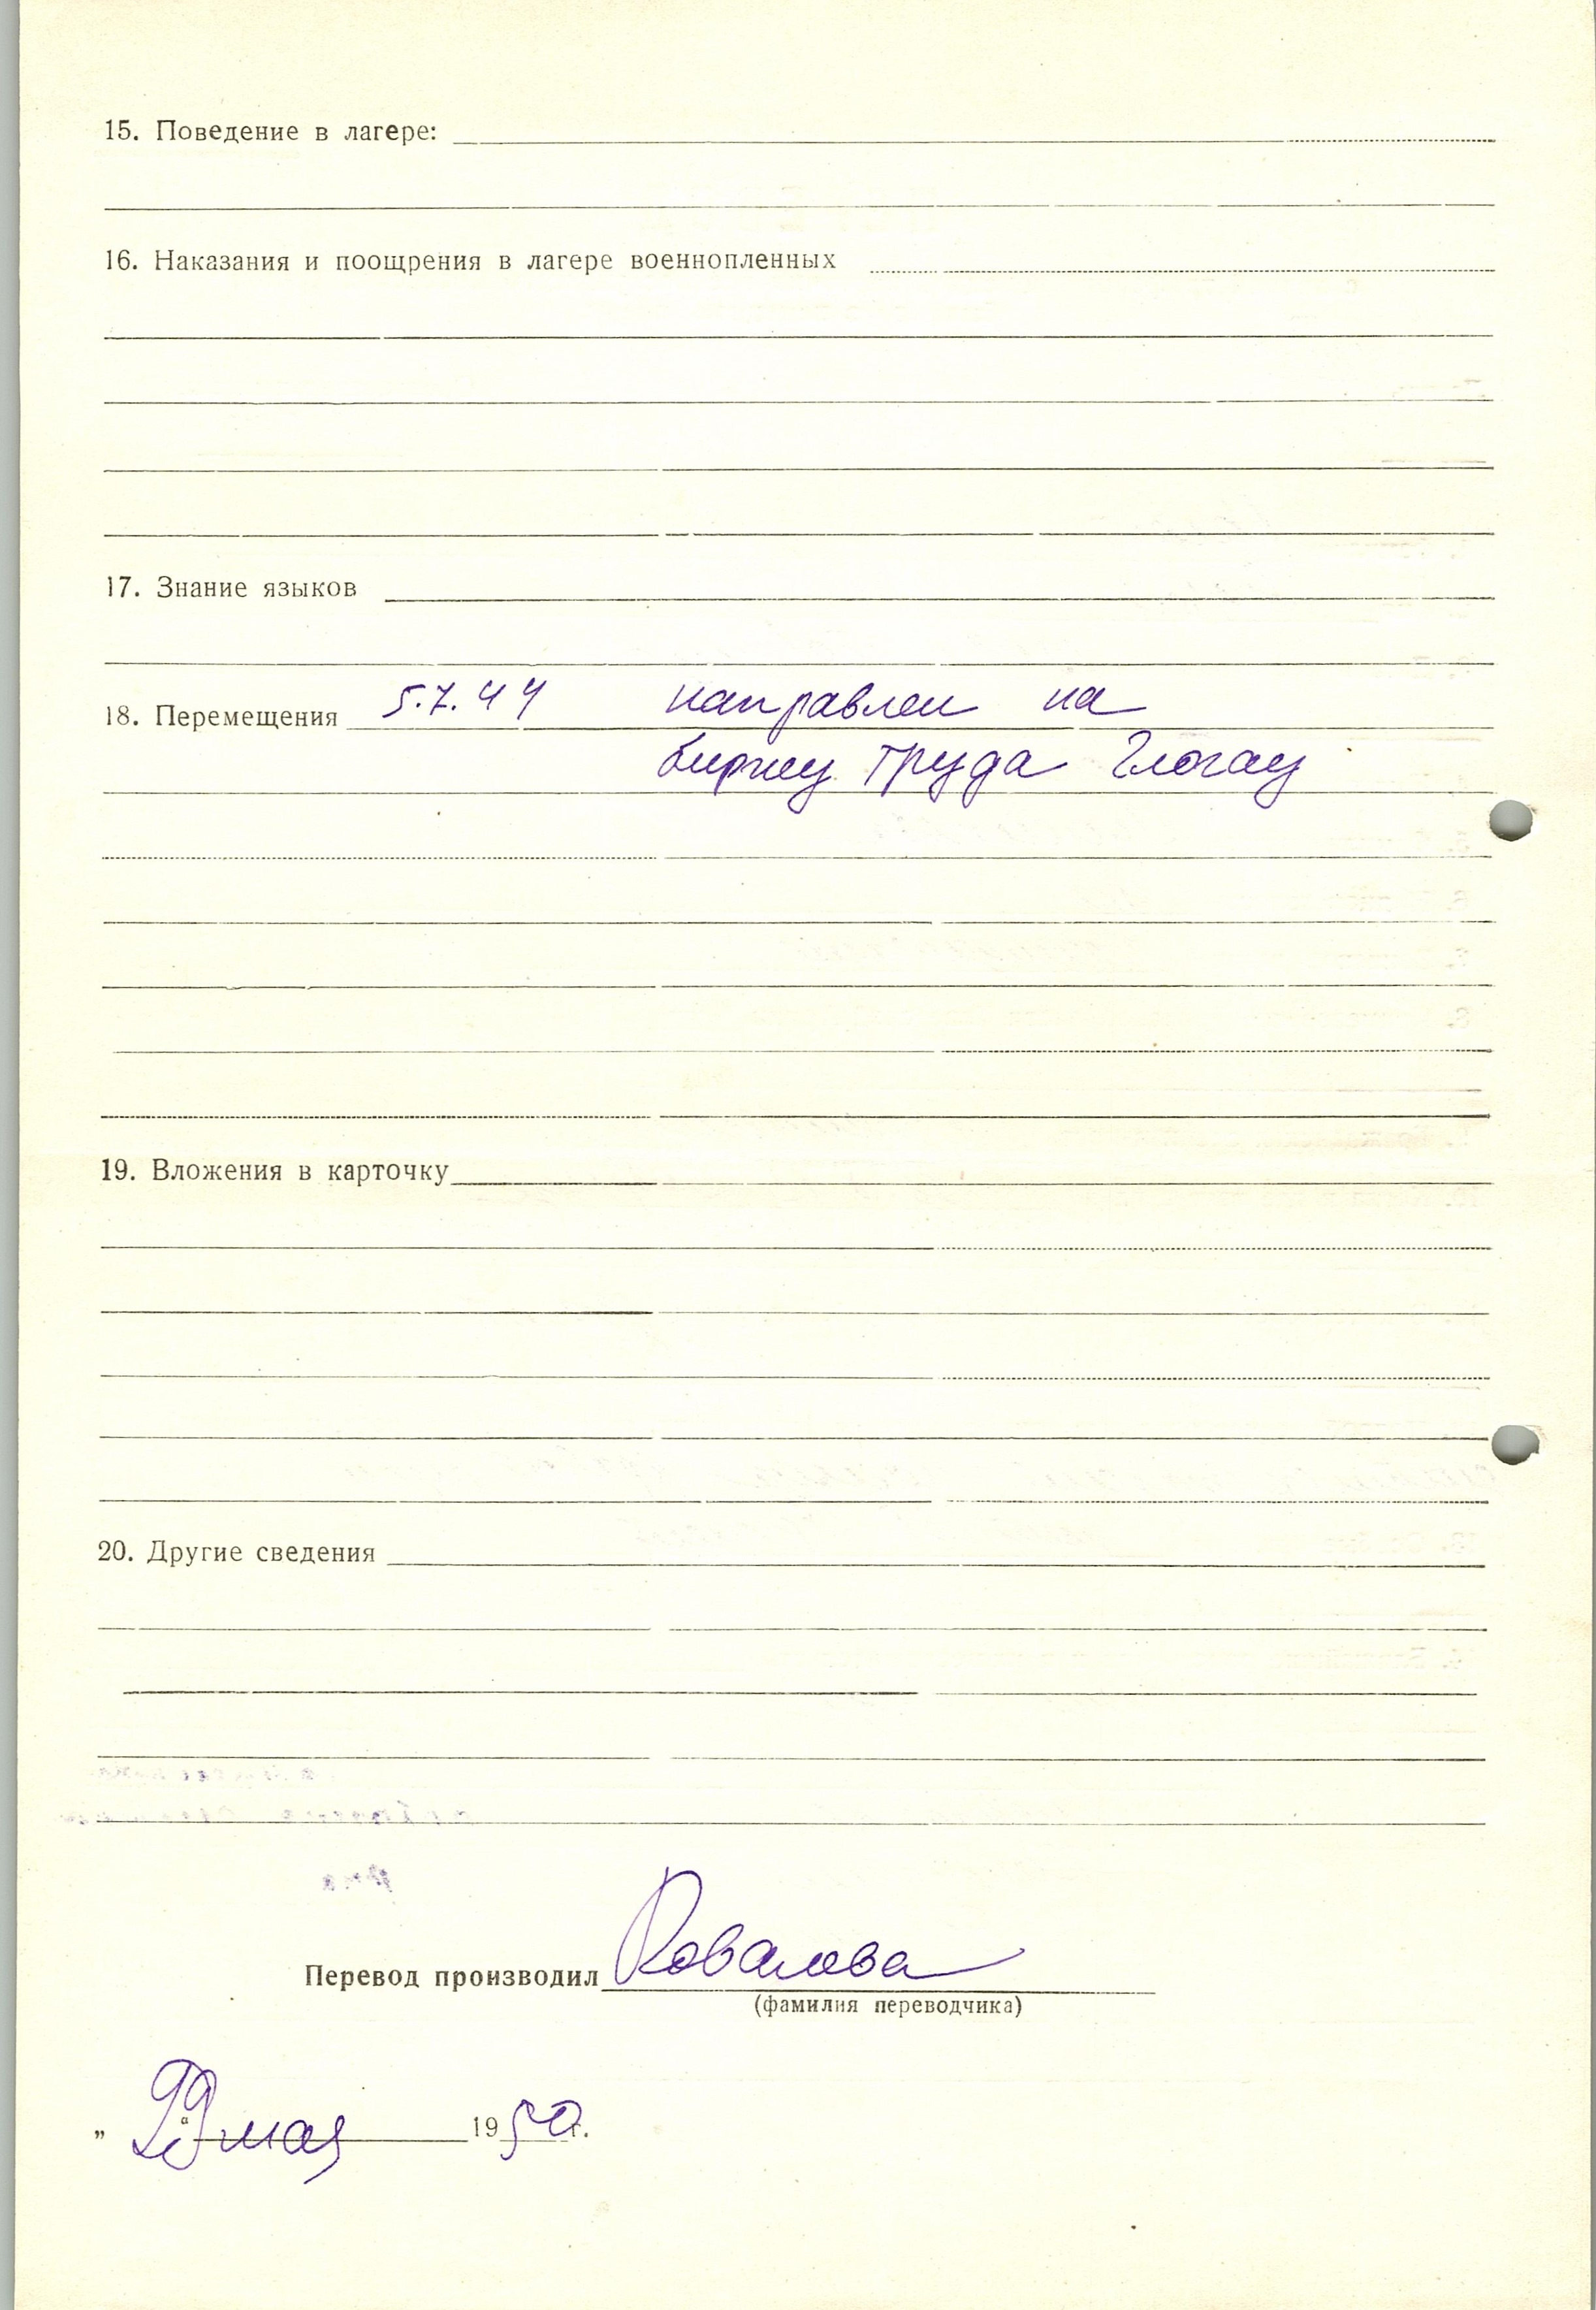 15. Поведение в лагере:
16. Наказания и поощрения в лагере военнопленных
17. Знание языков
18. Перемещения 5.7.44 направлен на
биржу труда Глогау
19. Вложения в карточку
20. Другие сведения
Перевод производил Ковалева
(фамилия переводчика)
„29“ мая 1950 г.